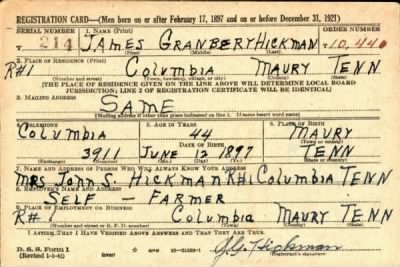 REGISTRATION CARD—(Men born on or after February 17, 1897 and on or before December 31, 1921)
SERIAL NUMBER 1. NAME (Print) ORDER NUMBER
T 214 JAMES GRANBERY HICKMAN T 10,440
(First) (Middle) (Last)
2. PLACE OF RESIDENCE (Print)
R#1 Columbia MAURY TENN
(Number and street) (Town, township, village, or city) (County) (State)
[THE PLACE OF RESIDENCE GIVEN ON THE LINE ABOVE WILL DETERMINE LOCAL BOARD
JURISDICTION; LINE 2 OF REGISTRATION CERTIFICATE WILL BE IDENTICAL]
3. MAILING ADDRESS
SAME
[Mailing address if other than place indicated on line 2. If same insert word same]
4. TELEPHONE 5. AGE IN YEARS 6. PLACE OF BIRTH
Columbia 44 MAURY
DATE OF BIRTH (Town or county)
3911 JUNE 12 1897 TENN
(Mo.) (Day) (Yr.) (State or country)
7. NAME AND ADDRESS OF PERSON WHO WILL ALWAYS KNOW YOUR ADDRESS
MRS John S. HICKMAN R#1 Columbia TENN
8. EMPLOYER'S NAME AND ADDRESS
SELF — FARMER
9. PLACE OF EMPLOYMENT OR BUSINESS
R#1 Columbia MAURY TENN
(Number and street or R. F. D. number) (Town) (County) (State)
I AFFIRM THAT I HAVE VERIFIED ABOVE ANSWERS AND THAT THEY ARE TRUE.
D. S. S. FORM 1 GPO J.G. Hickman
(Revised 1-1-42) (Registrant's signature)